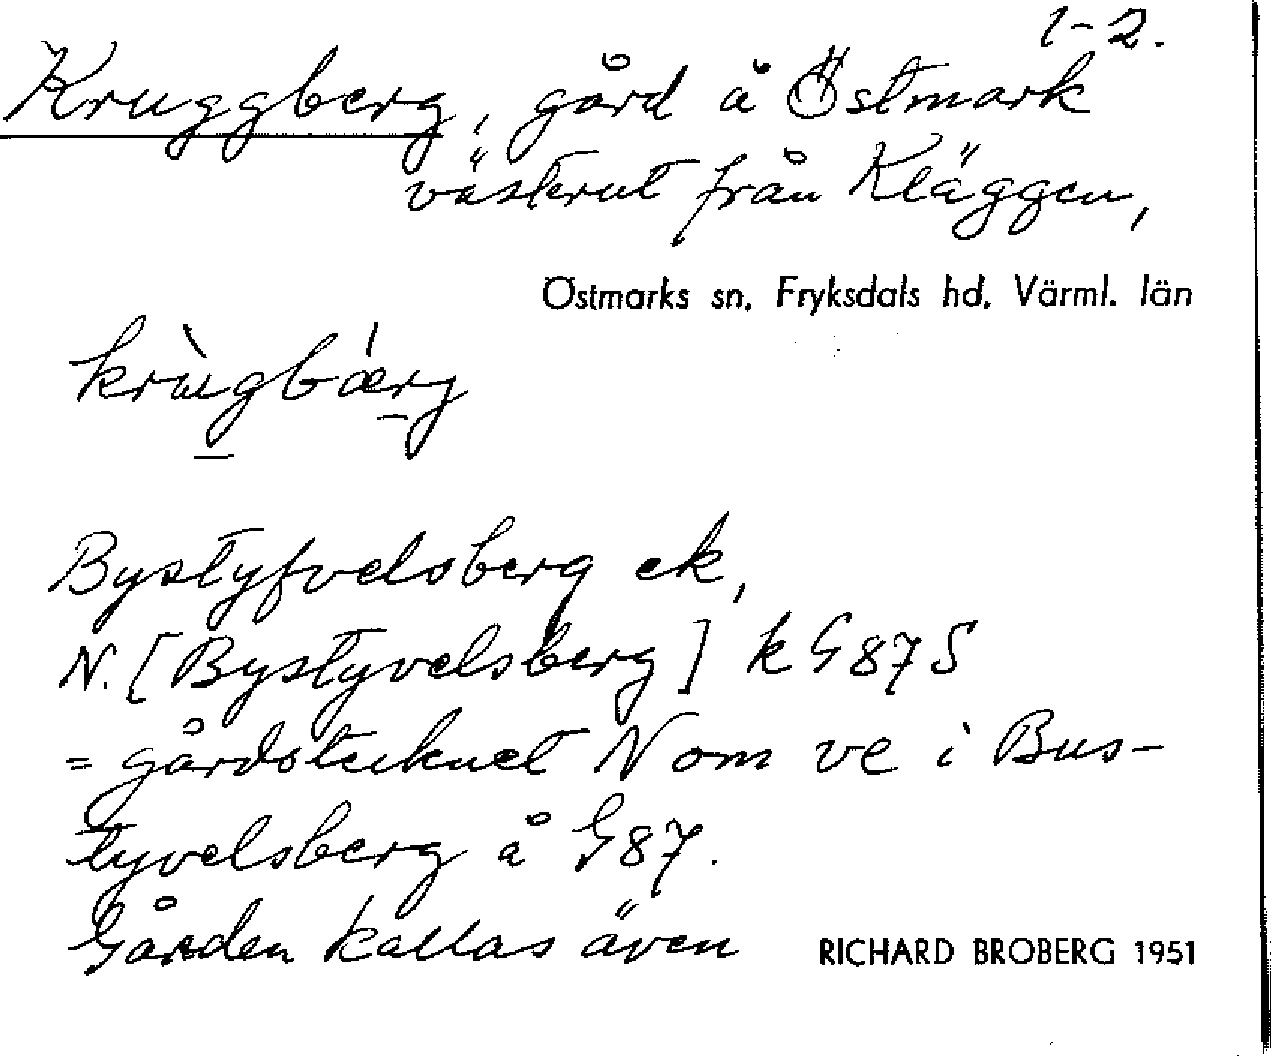 1-2.
Kruggberg, gård å Östmark
västerut från Kläggen,
Östmarks sn, Fryksdals hd, Värml. län
krùgbǽrg
Bystyfvelsberg ek,
N. [Bystyvelsberg] k G87S
= gårdstecknet N om ve i Bus-
tyvelsberg å G87.
Gården kallas även
RICHARD BROBERG 1951